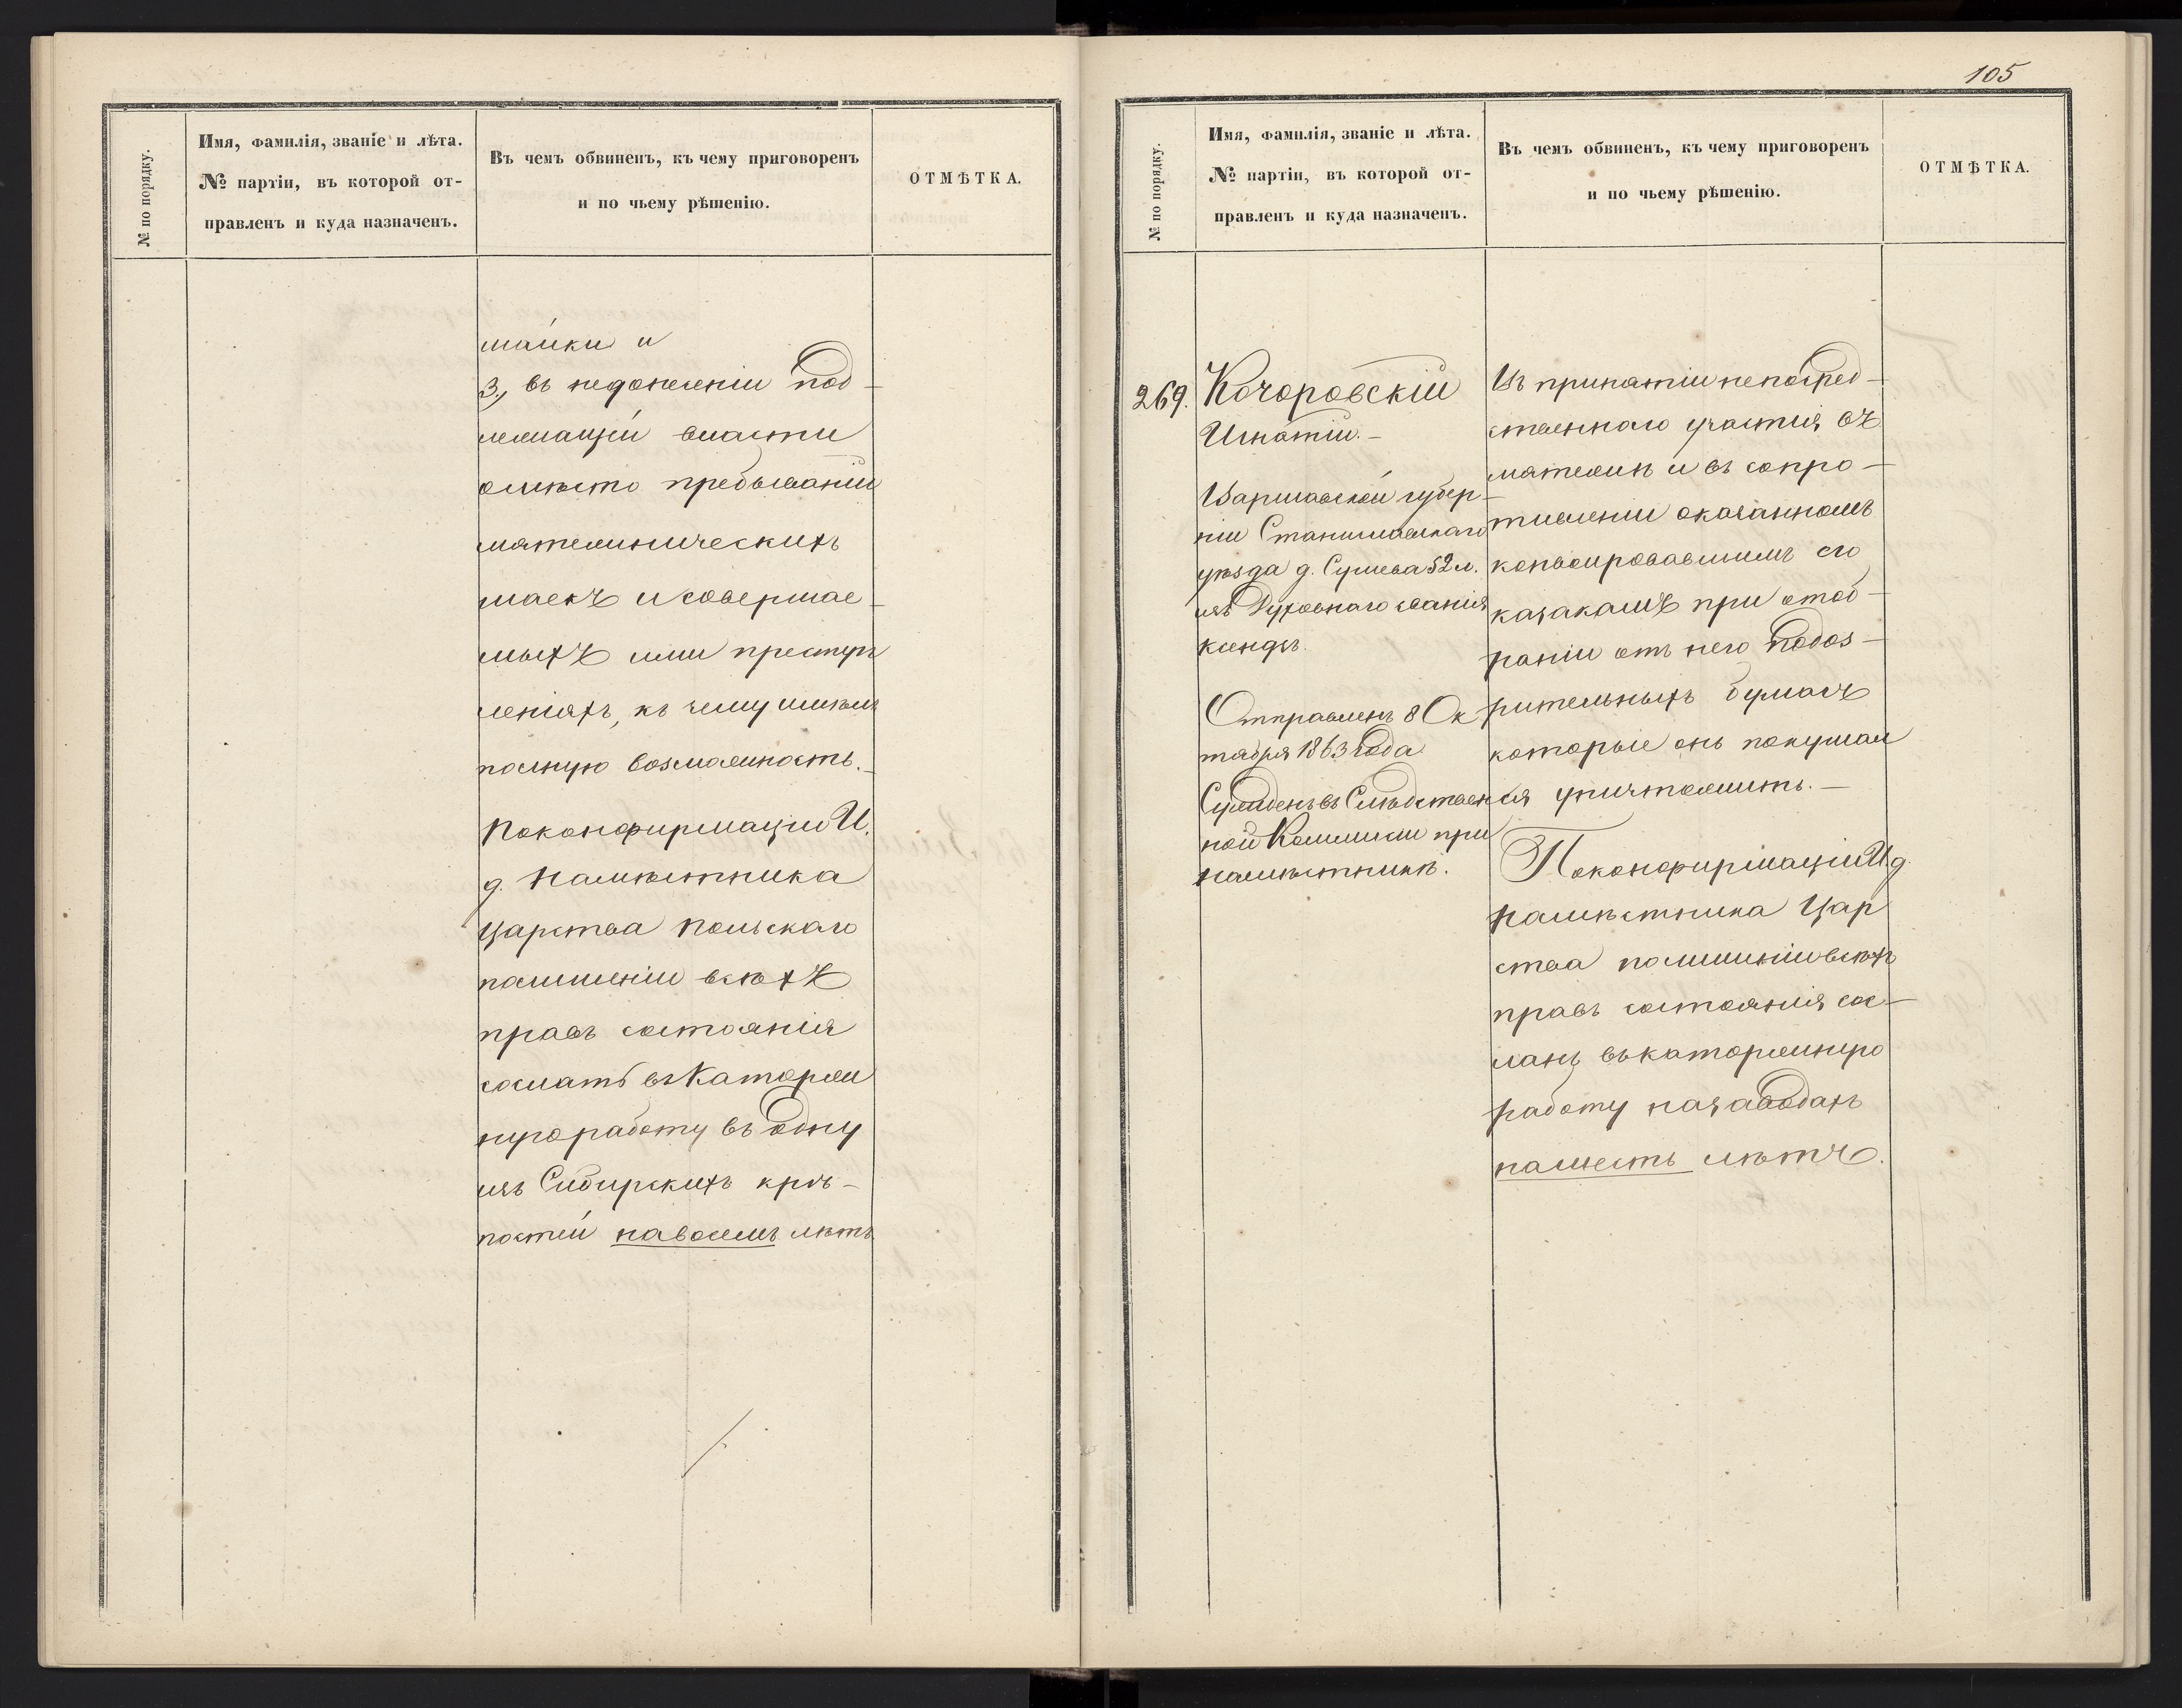 № по порядку.
Имя, фамилія, званіе и лѣта.
№ партіи, въ которой от-
правленъ и куда назначенъ.
Въ чемъ обвиненъ, къ чему приговоренъ
и по чьему рѣшенію.
ОТМѢТКА.
шайки и
3., въ недонесеніи под-
лежащей власти
омѣсто пребываніи
мятежническихъ
шаекъ и совершае-
мыхъ ими преступ
леніяхъ, къ чему имѣлъ
полную возможность.-
Поконфирмаціи И.
д. Намѣстника
Царства Польскаго
полишеніи всѣхъ
правъ состоянія
сослать въ Каторж
нуюработу въ одну
изъ Сибирскихъ крѣ-
постей навосемь лѣтъ.
105
№ по порядку.
Имя, фамилія, званіе и лѣта.
№ партіи, въ которой от-
правленъ и куда назначенъ.
Въ чемъ обвиненъ, къ чему приговоренъ
и по чьему рѣшенію.
ОТМѢТКА.
269.
Кочоровскій
Игнатій.-
Варшавской губер-
ніи Станиславскаго
уѣзда д. 52 л.
изъ Духовнаго званія
ксендзъ.
Отправленъ 8 Ок
тября 1863 года
Сужденъ въ Слѣдствен
ной Коммисіи при
намѣстникѣ.
Въ принятіи непосред-
ственнаго участія въ
мятежѣ и въ сопро-
тивленіи оказанномъ
конвоировавшимъ его
казакамъ при отоб-
раніи отъ него подоз-
рительныхъ бумагъ
которые онъ покушал
ся уничтожить.-
Поконфирмаціи И.д.
Намѣстника Цар
ства полишеніи всѣхъ
правъ состоянія сос-
ланъ въкаторжную
работу назаводахъ
нашесть лѣтъ.